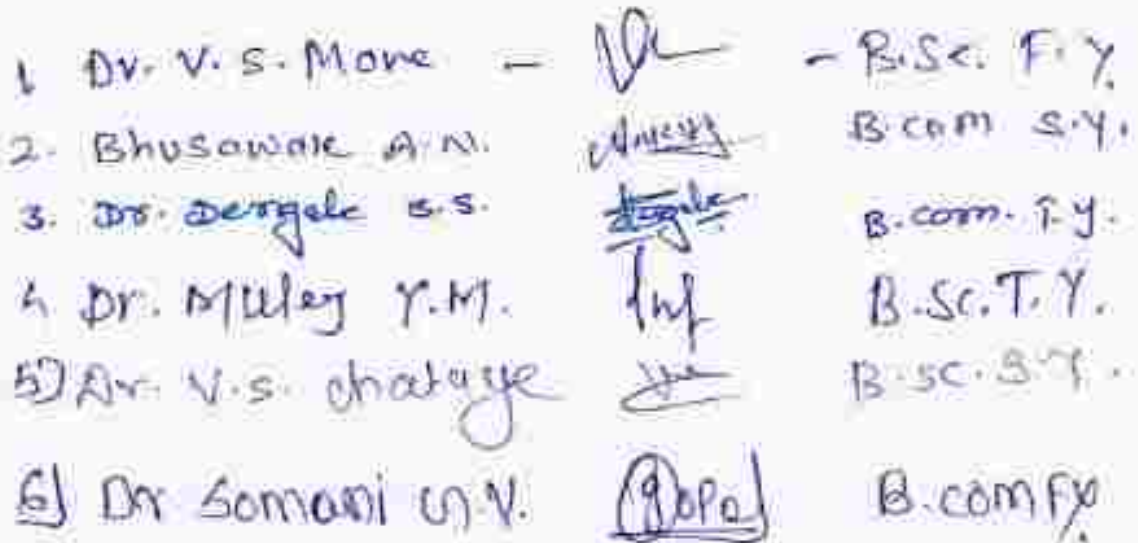 1 Dr. V. S. More - - B.Sc. F.Y.
2. Bhusaware A.N. B.com S.Y.
3. Dr. Dengale B.S. Dengale B.com. T.Y.
4 Dr. Muley Y.M. B.Sc. T.Y.
5) Dr. V.S. chataye B.SC. S.Y.
6) Dr Somani G.V. Gopal B.com F.Y.